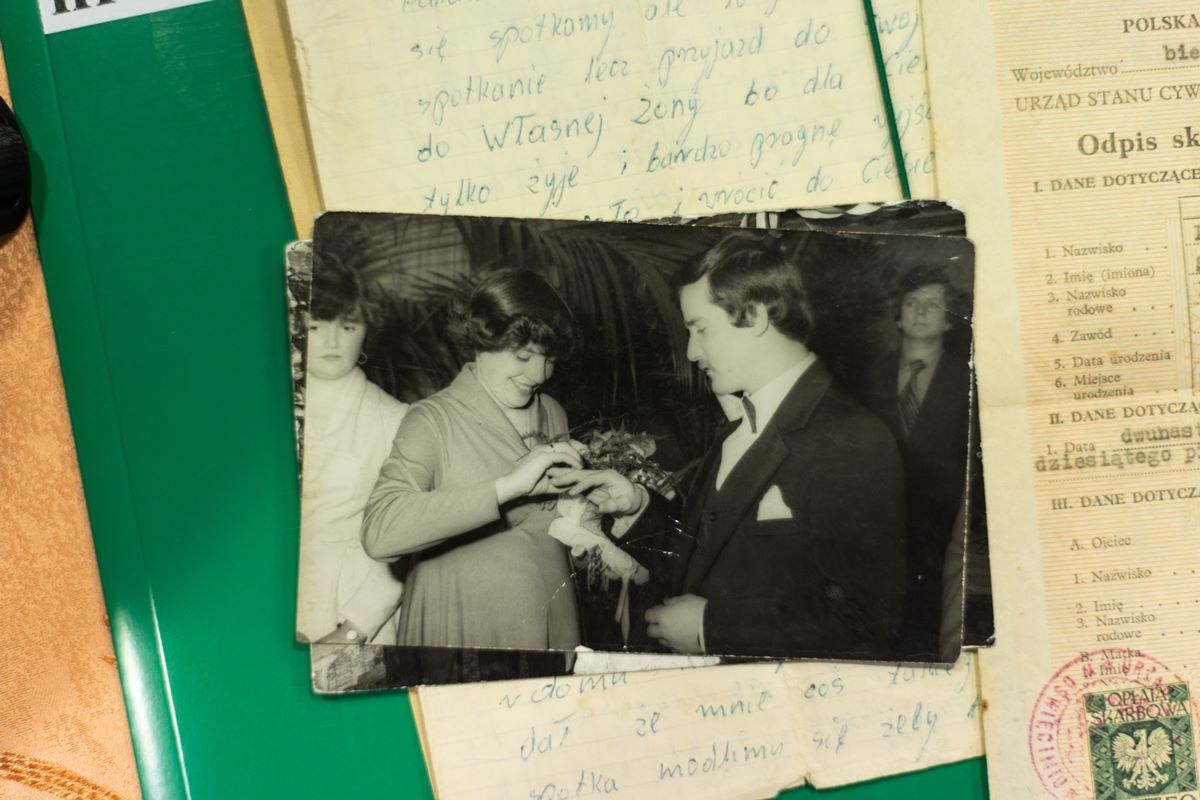 się spotkamy ale
spotkanie lecz przyjazd do
do własnej żony bo dla
tylko żyję i bardzo pragnę
i wrócić do Ciebie
w domu
dał że mnie coś
spotka modlimy się żeby
POLSKA
Województwo bie
URZĄD STANU CYW
Odpis sk
I. DANE DOTYCZĄCE
1. Nazwisko
2. Imię (imiona)
3. Nazwisko
rodowe
4. Zawód
5. Data urodzenia
6. Miejsce
urodzenia
II. DANE DOTYCZĄ
1. Data dwunast
dziesiątego p
III. DANE DOTYCZ
A. Ojciec
1. Nazwisko
2. Imię
3. Nazwisko
rodowe
B. Matka
1. Imię
OPŁATA
SKARBOWA